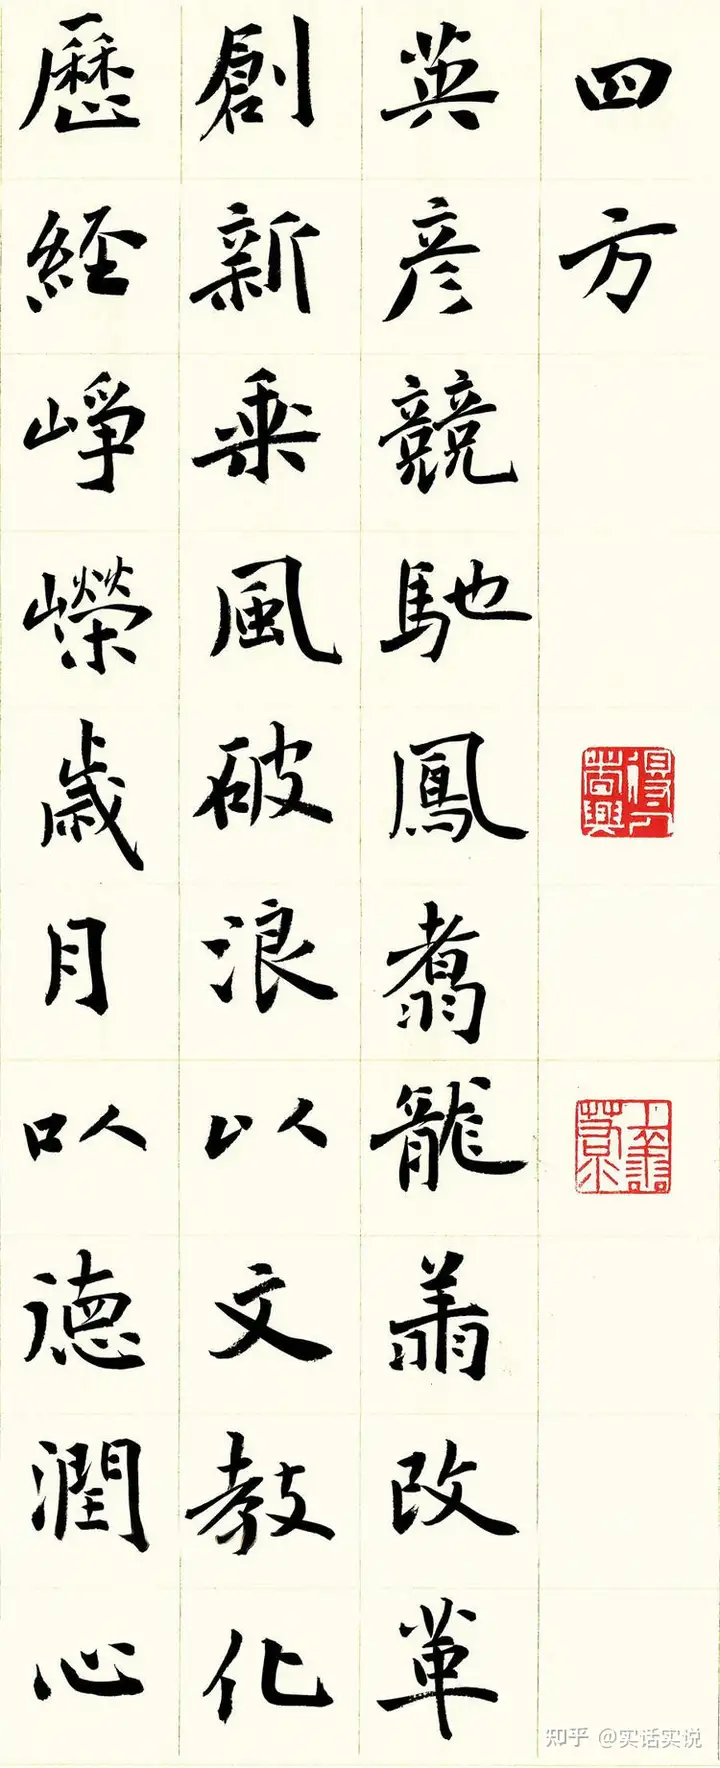 四方
英彦競馳鳳翥龍翔改革
創新乘風破浪以文教化
歷經崢嶸歲月㕥德潤心
知乎 @实话实说